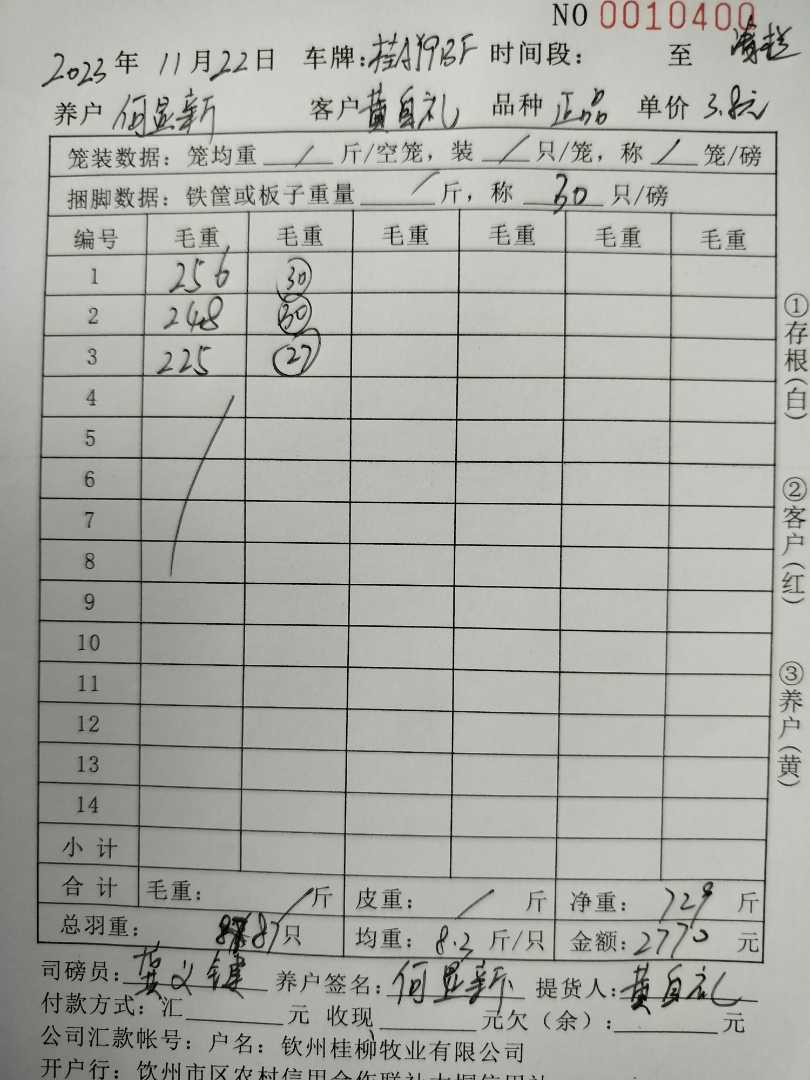 NO 0010400
2023年 11月22日 车牌: 时间段: 至
养户 何显新 客户 黄自礼 品种 正品 单价 3.8元
笼装数据: 笼均重 / 斤/空笼, 装 / 只/笼, 称 / 笼/磅
捆脚数据: 铁筐或板子重量 / 斤, 称 30 只/磅
编号 毛重 毛重 毛重 毛重 毛重 毛重
1 256 30
2 248 30
3 225 27
4
5
6
7
8
9
10
11
12
13
14
小计
合计 毛重: / 斤 皮重: / 斤 净重: 729 斤
总羽重: 87只 均重: 8.3 斤/只 金额: 2770 元
司磅员: 养户签名: 何显新 提货人: 黄自礼
付款方式: 汇 元 收现 元欠(余): 元
公司汇款帐号: 户名: 钦州桂柳牧业有限公司
开户行: 钦州市区农村信用合作联社大垌信用社
①存根(白)
②客户(红)
③养户(黄)